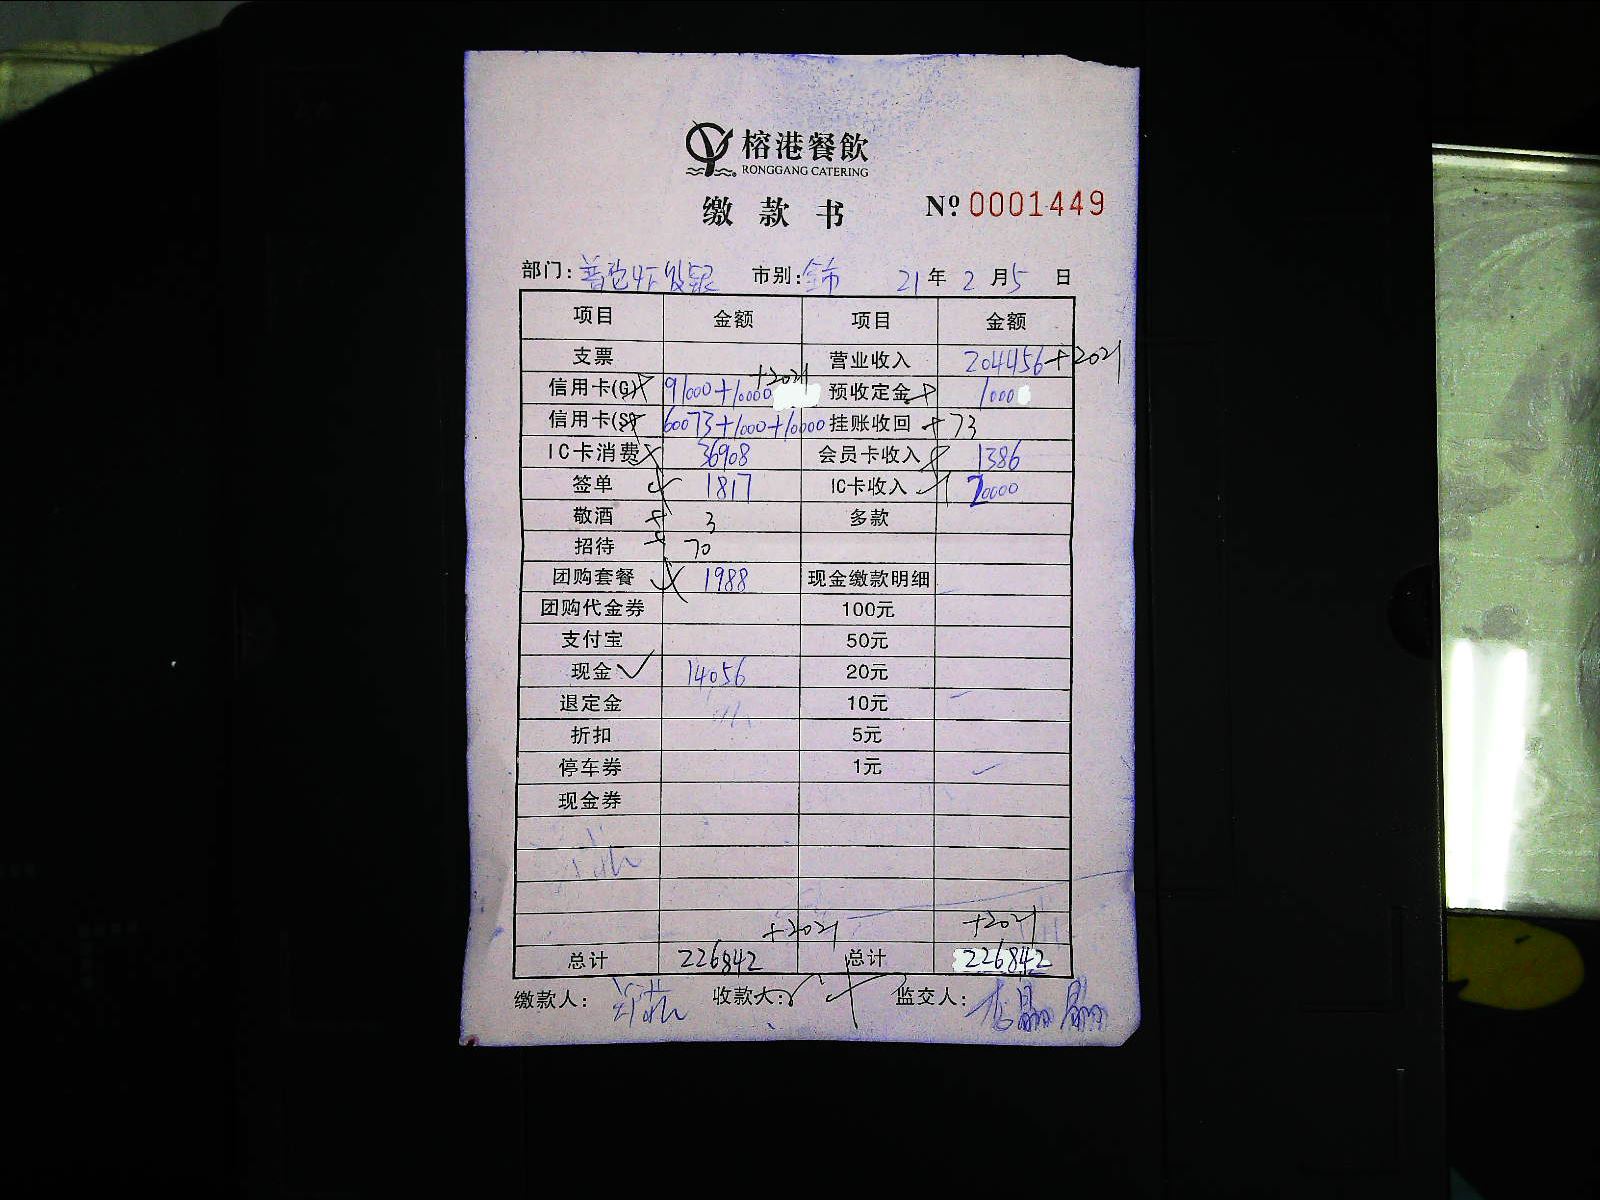 榕港餐飲
RONGGANG CATERING
缴款书 № 0001449
部门: 市别: 全市 21年 2月 5日
项目 金额 项目 金额
支票 营业收入 204456+2021
信用卡(G) 91000+10000 +2021 预收定金 1000
信用卡(S) 60073+1000+10000 挂账收回 +73
IC卡消费 36908 会员卡收入 1386
签单 1817 IC卡收入 20000
敬酒 3 多款
招待 70
团购套餐 1988 现金缴款明细
团购代金券 100元
支付宝 50元
现金 14056 20元
退定金 10元
折扣 5元
停车券 1元
现金券
+2021 +2021
总计 226842 总计 226842
缴款人: 收款人: 监交人: